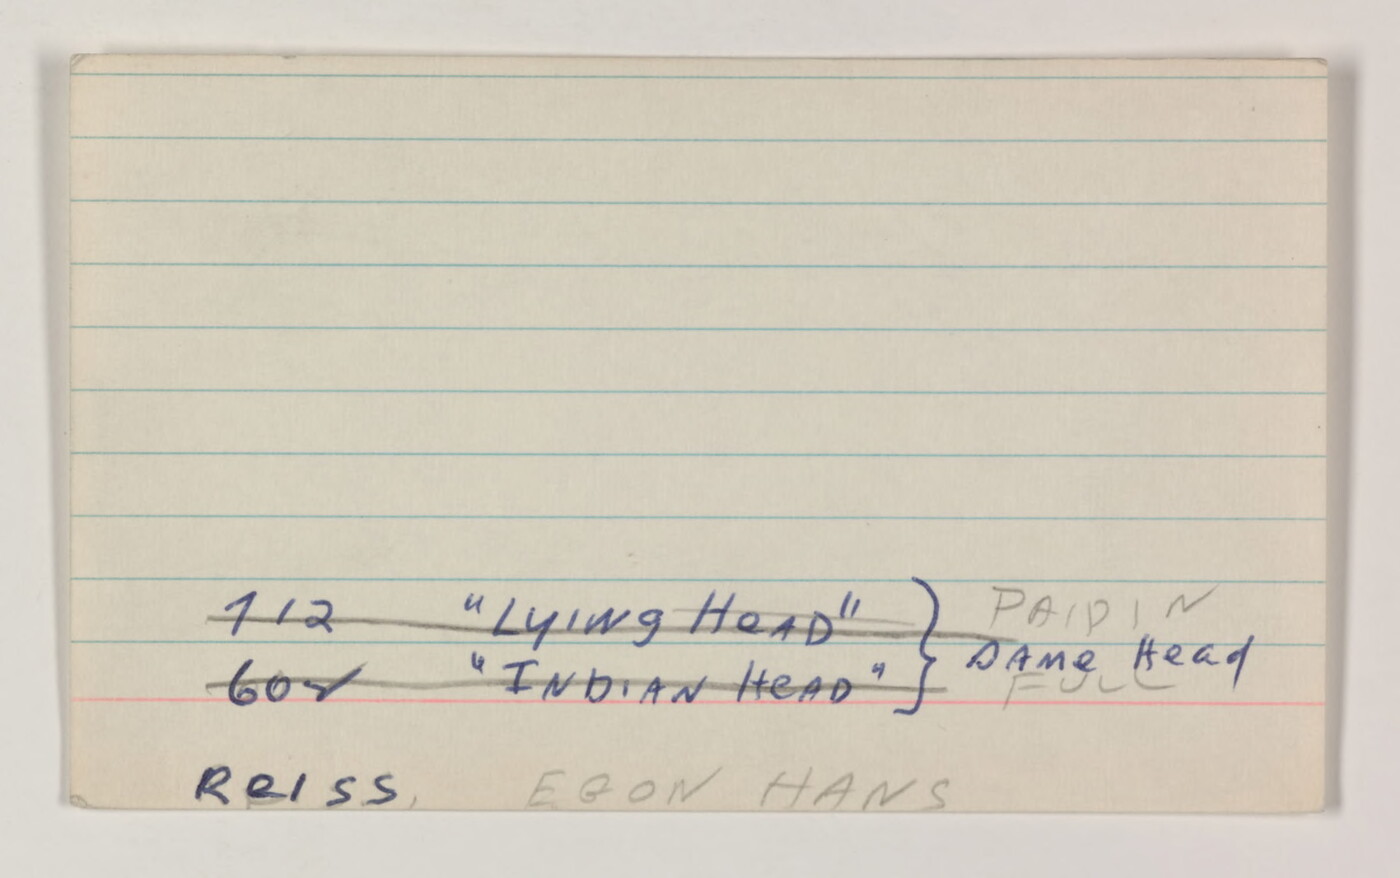 112 "Lying Head" } PAID IN
60 "INDIAN HEAD" } SAMe Head
FULL
Reiss, EGON HANS